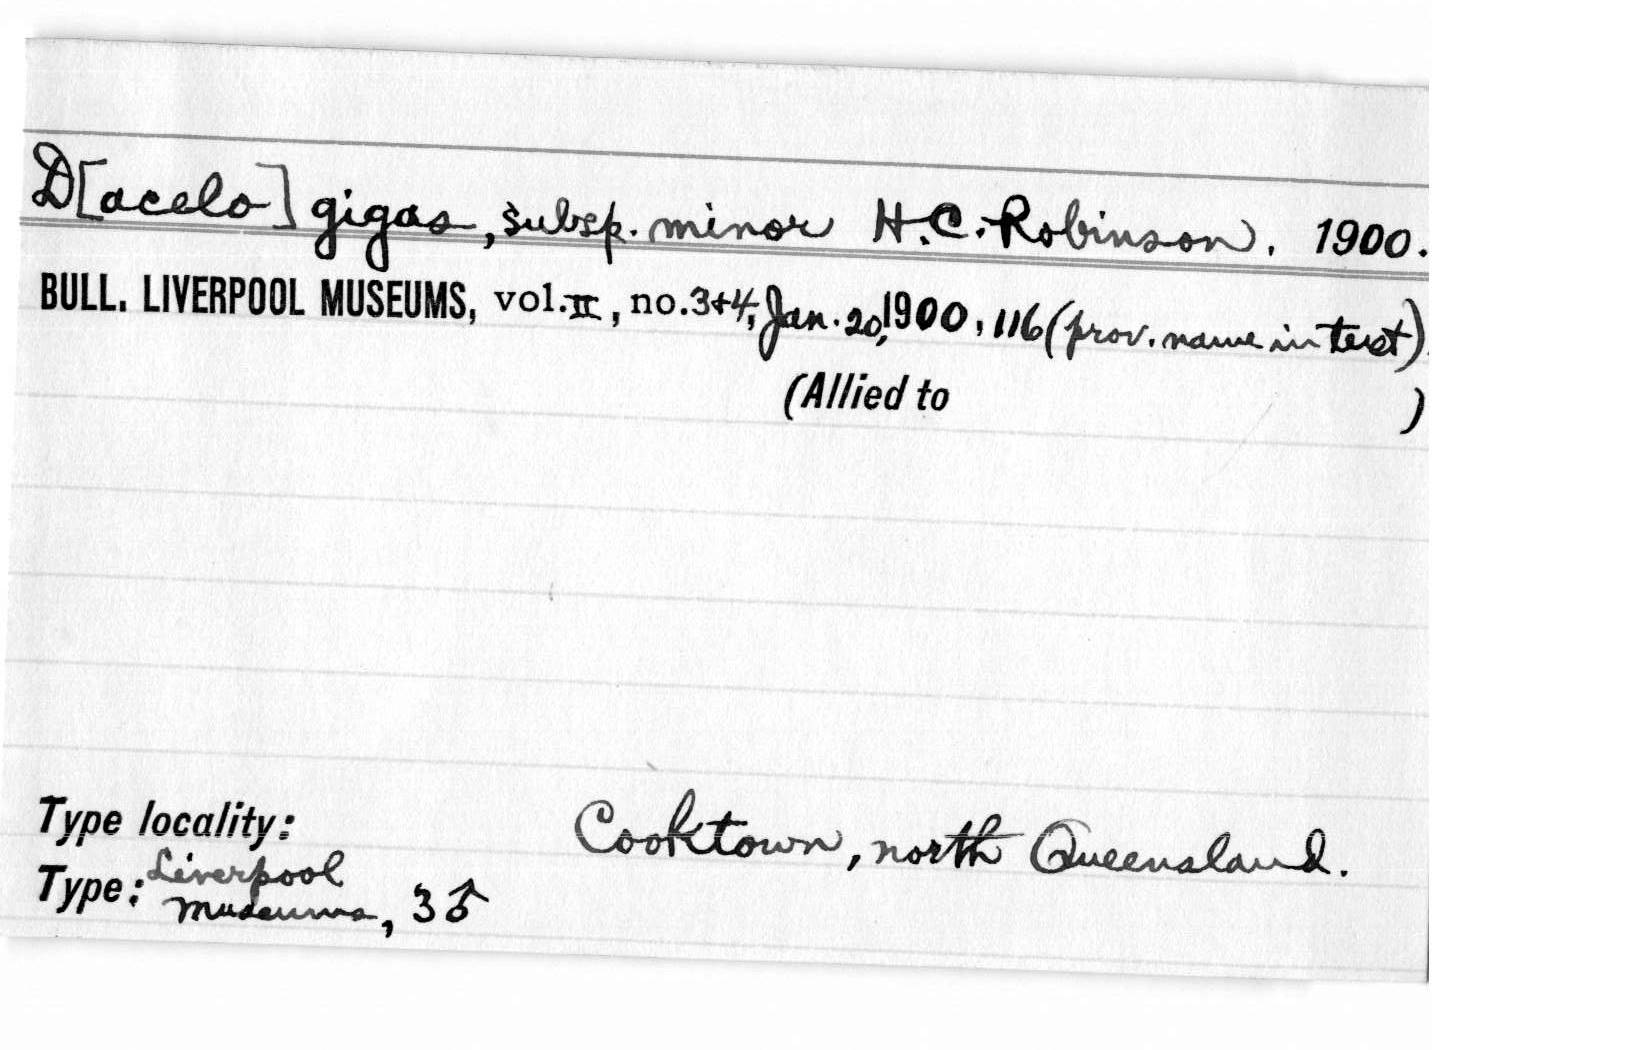 D[acelo] gigas, subsp. minor H.C. Robinson, 1900.
BULL. LIVERPOOL MUSEUMS, vol. II, no. 3+4, Jan. 20, 1900, 116 (prov. name in text).
(Allied to )
Type locality: Cooktown, north Queensland.
Type: Liverpool
Museums, 3♂